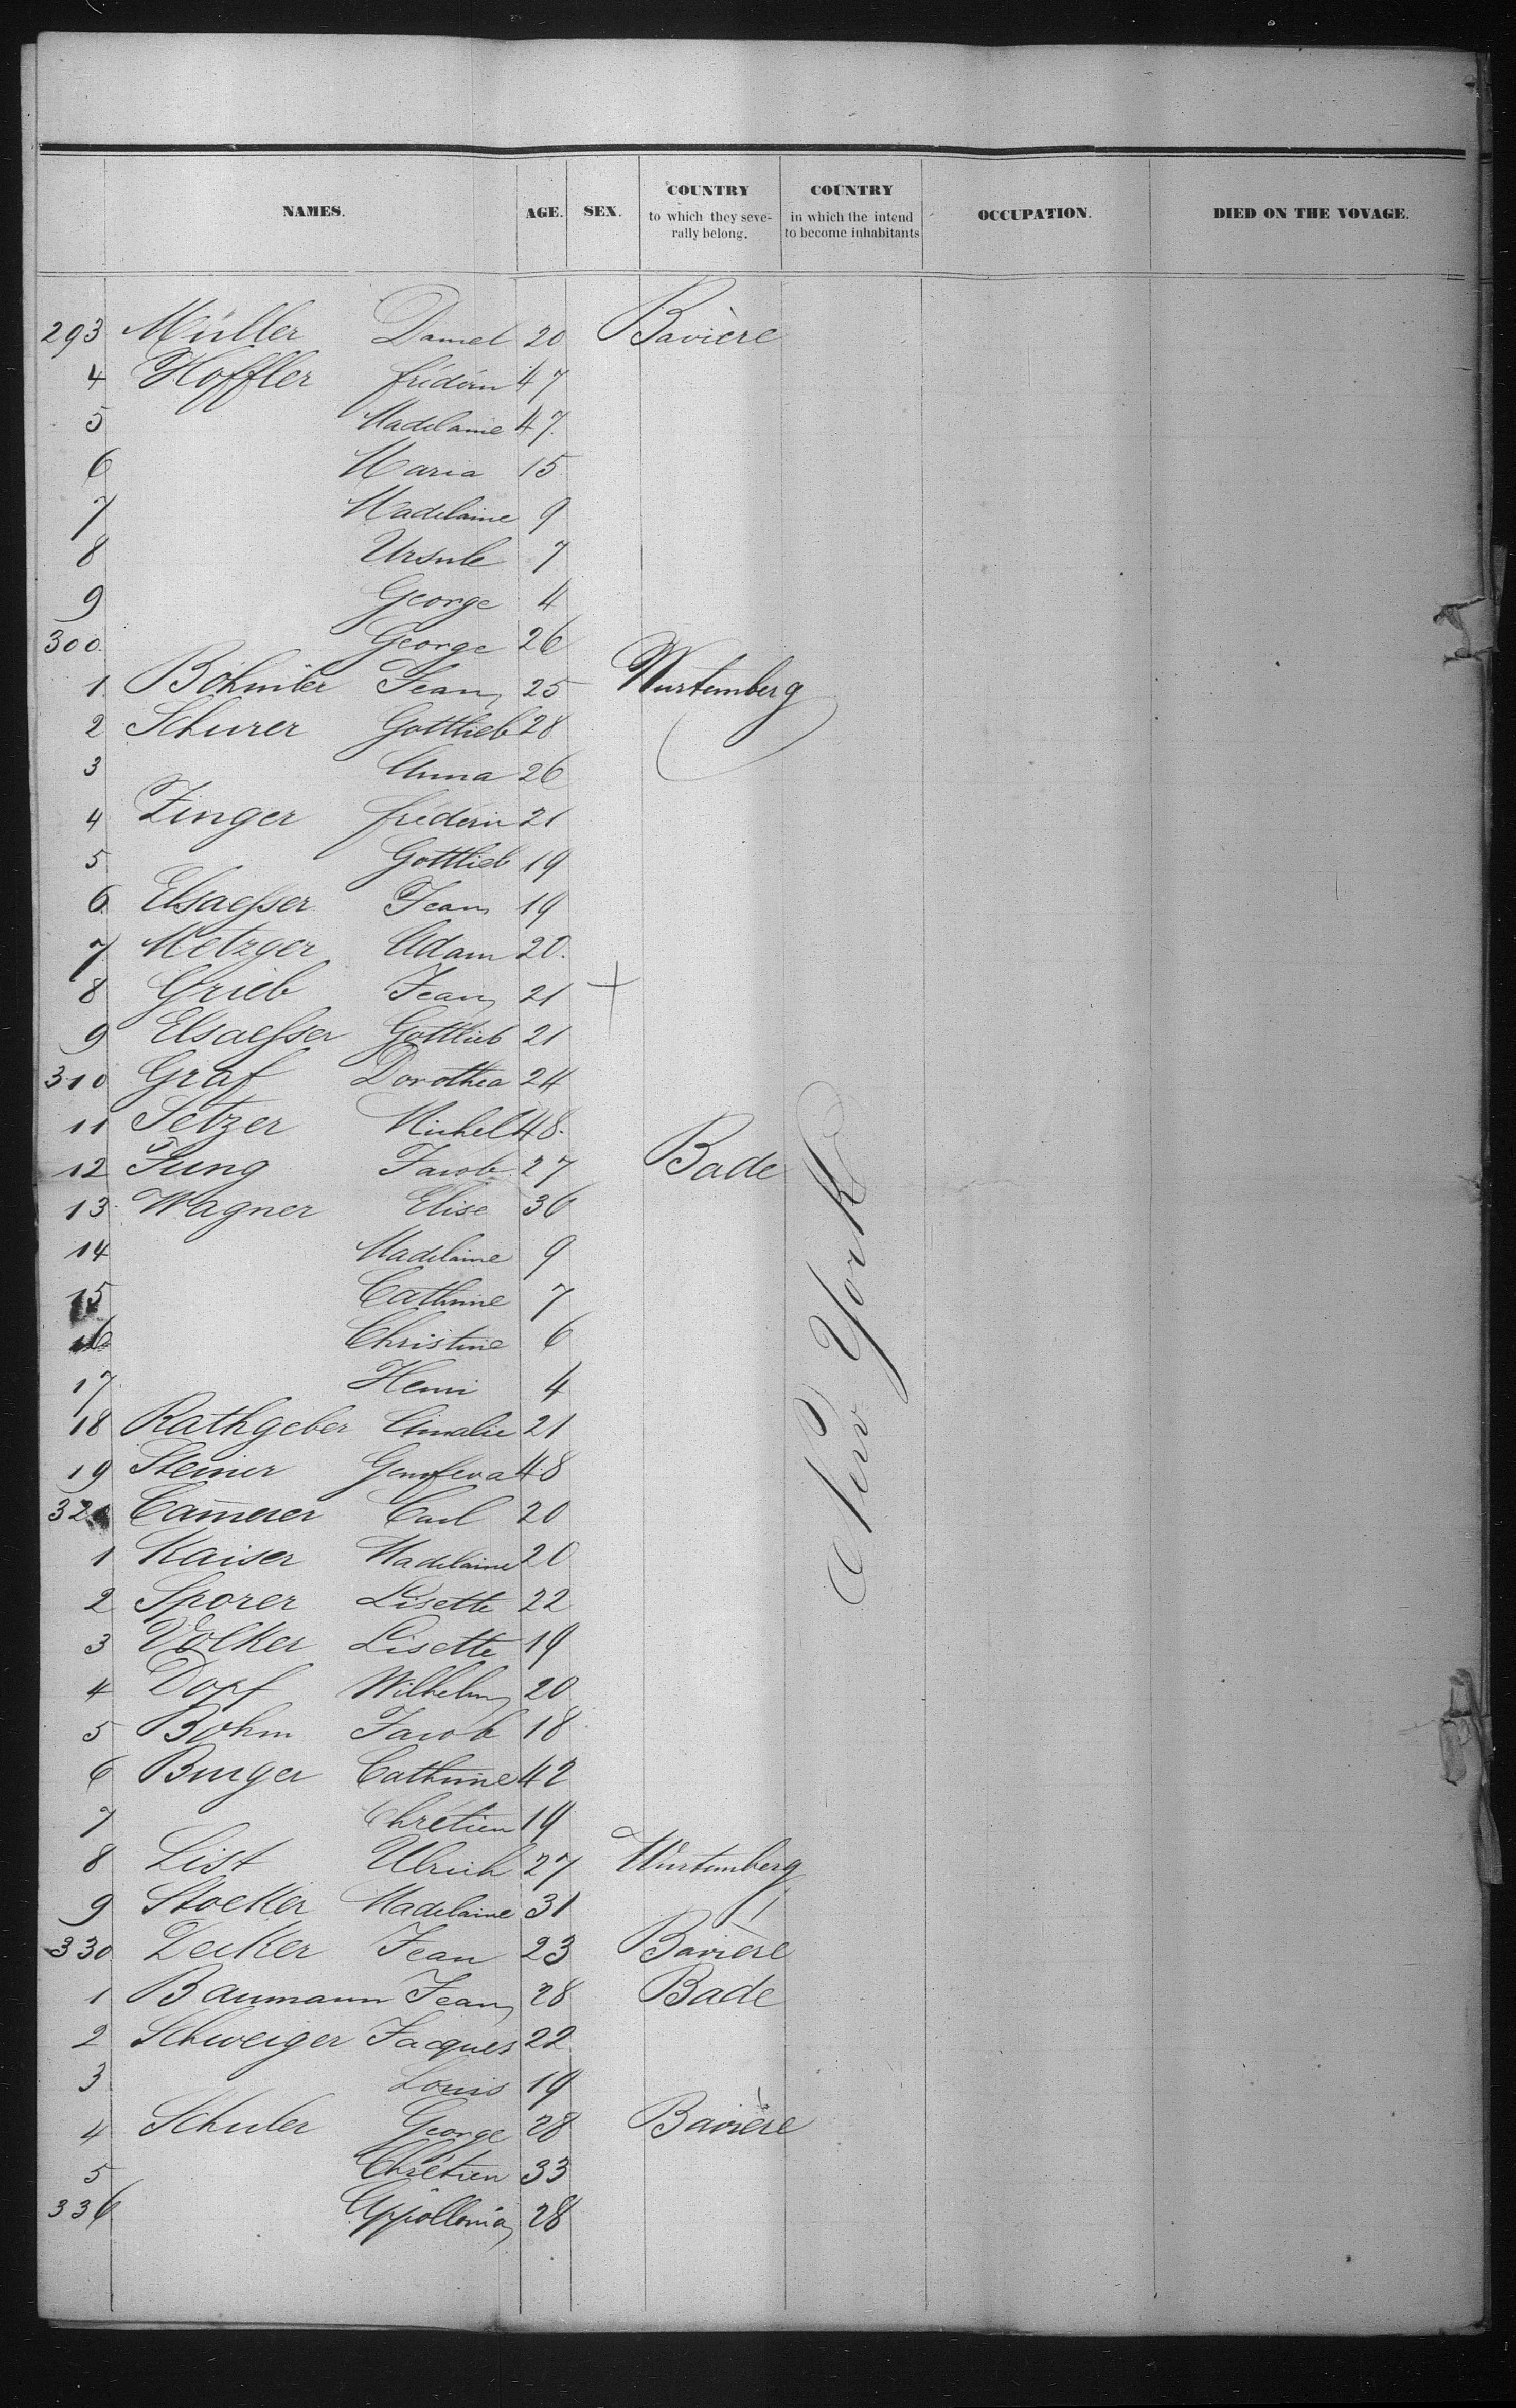 NAMES. AGE. SEX. COUNTRY to which they seve- rally belong. COUNTRY in which the intend to become inhabitants OCCUPATION. DIED ON THE VOYAGE.
293 Müller Daniel 20 Bavière
4 Hoffler fréderic 47
5 Madelaine 47
6 Maria 15
7 Madelaine 9
8 Ursule 7
9 George 4
300 George 26
1 Böhmler Jean 25 Wurtemberg
2 Schurer Gottlieb 28
3 Anna 26
4 Zinger fréderic 21
5 Gottlieb 19
6 Elsaesser Jean 19
7 Metzger Adam 20
8 Grieb Jean 21 +
9 Elsaesser Gottlieb 21
310 Graf Dorothea 24
11 Setzer Michel 48
12 Jung Jacob 27 Bade
13 Wagner Elise 36
14 Madelaine 9
15 Cathrine 7
16 Christine 6
17 Henri 4
18 Rathgeber Amalie 21
19 Steiner Genofeva 48
320 Cam̄erer Carl 20
1 Kaiser Madelaine 20
2 Sporer Lisette 22
3 Volker Lisette 19
4 Dorf Wilhelm 20
5 Bohm Jacob 18
6 Burger Cathrine 42
7 Chretien 19
8 List Ulrich 27 Wurtemberg
9 Stocker Madelaine 31 "
330 Decker Jean 23 Bavière
1 Baumann Jean 28 Bade
2 Schweiger Jacques 22
3 Louis 19
4 Schuler George 28 Bavière
5 Chrétien 33
336 Appollonia 28
New York